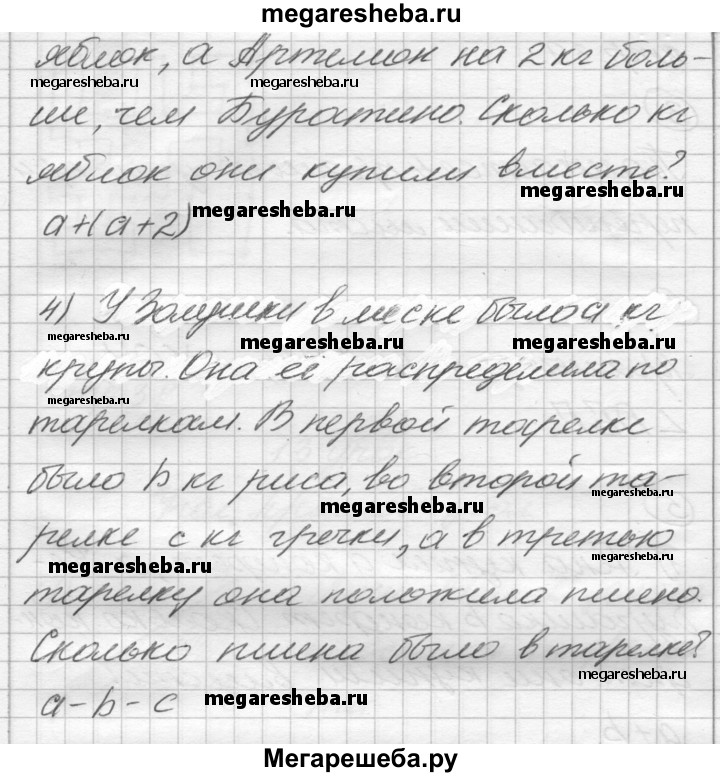 megaresheba.ru
яблок, а Артемон на 2 кг боль-
megaresheba.ru megaresheba.ru
ше, чем Буратино. Сколько кг
яблок они купили вместе?
megaresheba.ru
a+(a+2) megaresheba.ru
4) У Золушки в меске было a кг
megaresheba.ru megaresheba.ru megaresheba.ru
крупы. Она её распределила по
megaresheba.ru
тарелкам. В первой тарелке
было b кг риса, во второй та-
megaresheba.ru megaresheba.ru
релке c кг гречки, а в третью
megaresheba.ru megaresheba.ru
тарелку она положила пшено.
Сколько пшена было в тарелке?
a-b-c megaresheba.ru megaresheba.ru
Мегарешеба.ру